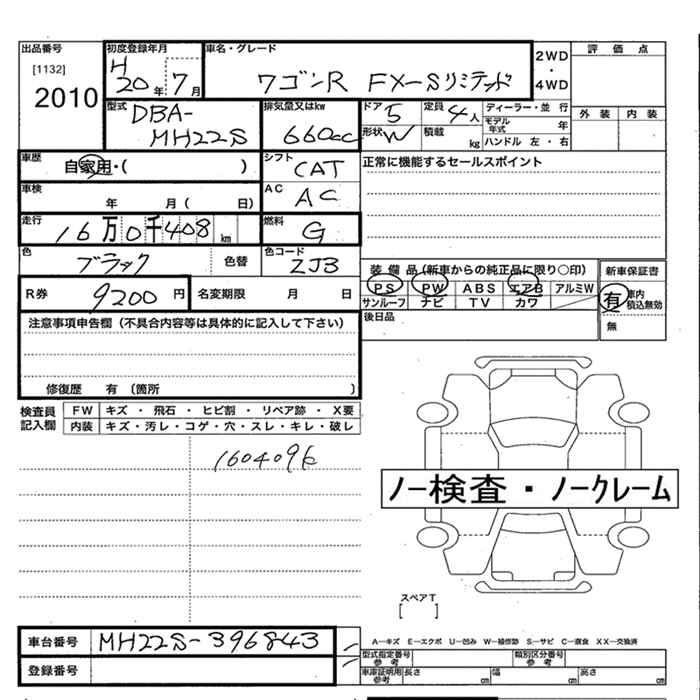 出品番号
[1132]
2010
初度登録年月
H
20年 7月
車名・グレード
ワゴンR FX-Sリミテッド
2WD
・
4WD
評価点
外装 内装
型式
DBA-
MH22S
排気量又はkw
660cc
ドア 5
定員 4人
形状 W
積載 kg
ディーラー・並行
モデル年式 年
ハンドル 左・右
車歴
自家用・( )
シフト
CAT
正常に機能するセールスポイント
車検
年 月( 日)
AC
AC
走行
16万0千408km
燃料
G
色
ブラック
色替
色コード
ZJ3
R券
9200円
名変期限 月 日
装備品(新車からの純正品に限り〇印)
PS PW ABS エアB アルミW
サンルーフ ナビ TV カワ
後日品
新車保証書
有 車内積込無効
無
注意事項申告欄(不具合内容等は具体的に記入して下さい)
修復歴 有 (箇所 )
検査員
記入欄
FW キズ・飛石・ヒビ割・リペア跡・X要
内装 キズ・汚レ・コゲ・穴・スレ・キレ・破レ
ノー検査・ノークレーム
スペアT
[ ]
車台番号 MH22S-396843
登録番号
A―キズ E―エクボ U―凹み W―補修跡 S―サビ C―腐食 XX―交換済
型式指定番号
参考
類別区分番号
参考
車庫証明用
参考
長さ cm 幅 cm 高さ cm